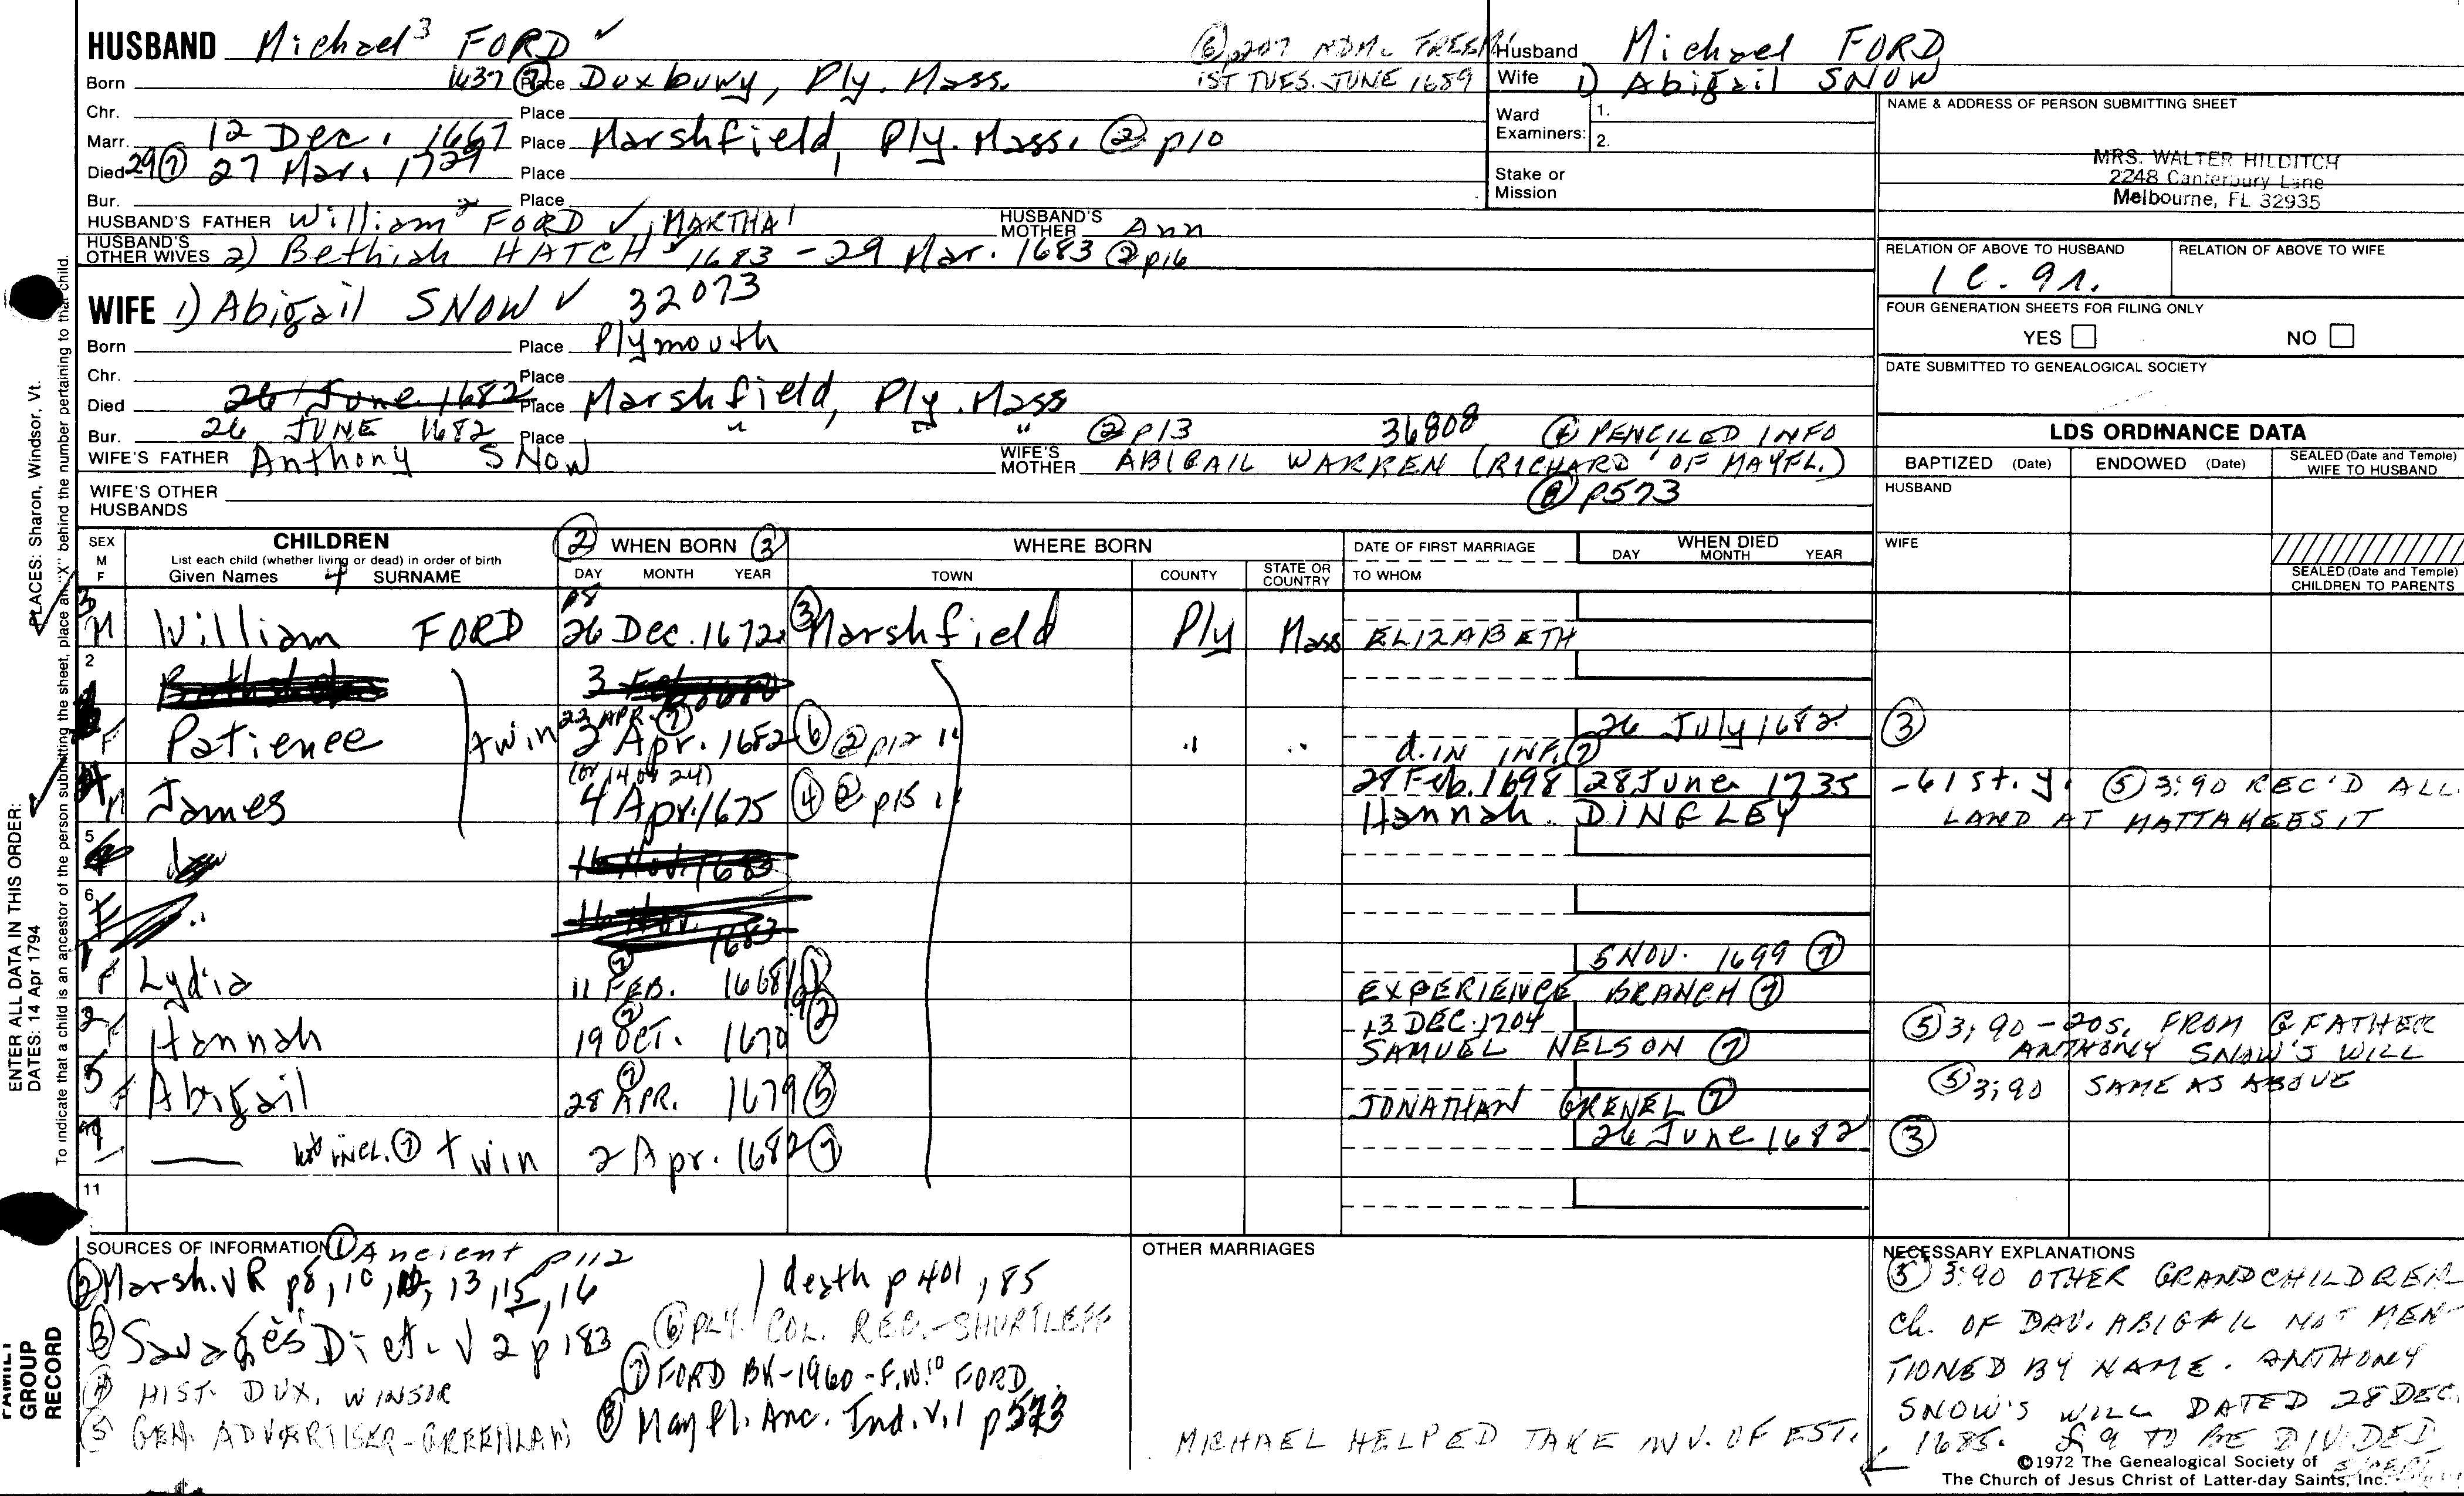 HUSBAND Michael³ FORD ✓
⑥ p207 ADM. FREEM
1ST TUES. JUNE 1689
Born 1637 ⑦ Place Duxbury, Ply. Mass.
Chr. Place
Marr. 12 Dec. 1667 Place Marshfield, Ply. Mass. ② p10
Died 29 ⑦ 27 Mar. 1729 Place
Bur. Place
HUSBAND'S FATHER William² FORD ✓, MARTHA¹ HUSBAND'S MOTHER Ann
HUSBAND'S OTHER WIVES 2) Bethiah HATCH ✓ 1683 - 29 Mar. 1683 ② p16
WIFE 1) Abigail SNOW ✓ 32073
Born Place Plymouth
Chr. Place
Died 26 June 1682 Place Marshfield, Ply. Mass
Bur. 26 JUNE 1682 Place " " " ② p13 36808 ④ PENCILED INFO
WIFE'S FATHER Anthony SNOW WIFE'S MOTHER ABIGAIL WARREN (RICHARD¹ OF MAYFL.)
⑧ p573
WIFE'S OTHER HUSBANDS
Husband Michael FORD
Wife 1) Abigail SNOW
Ward Examiners: 1.
2.
Stake or Mission
NAME & ADDRESS OF PERSON SUBMITTING SHEET
MRS. WALTER HILDITCH
2248 Canterbury Lane
Melbourne, FL 32935
RELATION OF ABOVE TO HUSBAND RELATION OF ABOVE TO WIFE
1 C. 9 r.
FOUR GENERATION SHEETS FOR FILING ONLY
YES NO
DATE SUBMITTED TO GENEALOGICAL SOCIETY
LDS ORDINANCE DATA
BAPTIZED (Date) ENDOWED (Date) SEALED (Date and Temple) WIFE TO HUSBAND
HUSBAND
WIFE
SEALED (Date and Temple) CHILDREN TO PARENTS
SEX M F CHILDREN ② WHEN BORN ③ WHERE BORN DATE OF FIRST MARRIAGE WHEN DIED
List each child (whether living or dead) in order of birth
Given Names 4 SURNAME DAY MONTH YEAR TOWN COUNTY STATE OR COUNTRY TO WHOM DAY MONTH YEAR
3 M William FORD p8 26 Dec. 1672 ③ Marshfield Ply Mass ELIZABETH
2 3 Feb
F Patience twin 22 APR. ⑦ 2 Apr. 1682 ⑥ ② p12 " " " d. IN INF. ⑦ 26 July 1682 ③
4 M James (or 14 or 24) 4 Apr. 1675 ④ ② p15 " 28 Feb. 1698 28 June 1735 - 61st. y. ⑤ 3:90 REC'D ALL
Hannah DINGLEY LAND AT MATTAKEESIT
5 16 Nov. 1683
6 " 16 Nov. 1683
1 F Lydia 11 FEB. ⑦ 1668/9 ① EXPERIENCE BRANCH ⑦ 5 NOV. 1699 ⑦
2 F Hannah 19 OCT. ⑦ 1670 ② 13 DEC. 1704 SAMUEL NELSON ⑦ ⑤ 3:90 - 20s. FROM G FATHER
ANTHONY SNOW'S WILL
5 F Abigail 28 APR. ⑦ 1679 ⑤ JONATHAN GRENEL ⑦ ⑤ 3:90 SAME AS ABOVE
— not incl. ⑦ twin 2 Apr. 1682 ⑦ 26 June 1682 ③
11
SOURCES OF INFORMATION ① Ancient p112
② Marsh. VR p8, 10, 12, 13, 15, 16
③ Savage's Dict. V 2 p183
④ HIST. DUX. WINSOR
⑤ GEN. ADVERTISER - GREENLAW
death p401, 85
⑥ PLY. COL. REC. - SHURTLEFF
⑦ FORD BK - 1960 - F.W.¹⁰ FORD
⑧ Mayfl. Anc. Ind. V.1 p573
OTHER MARRIAGES
MICHAEL HELPED TAKE INV. OF EST.
NECESSARY EXPLANATIONS
⑤ 3:90 OTHER GRANDCHILDREN
Ch. OF DAU. ABIGAIL NOT MEN-
TIONED BY NAME. ANTHONY
SNOW'S WILL DATED 28 DEC.
1685. £9 TO BE DIVIDED
©1972 The Genealogical Society of
The Church of Jesus Christ of Latter-day Saints, Inc.
PLACES: Sharon, Windsor, Vt.
ENTER ALL DATA IN THIS ORDER:
DATES: 14 Apr 1794
To indicate that a child is an ancestor of the person submitting the sheet, place an "X" behind the number pertaining to that child.
FAMILY GROUP RECORD